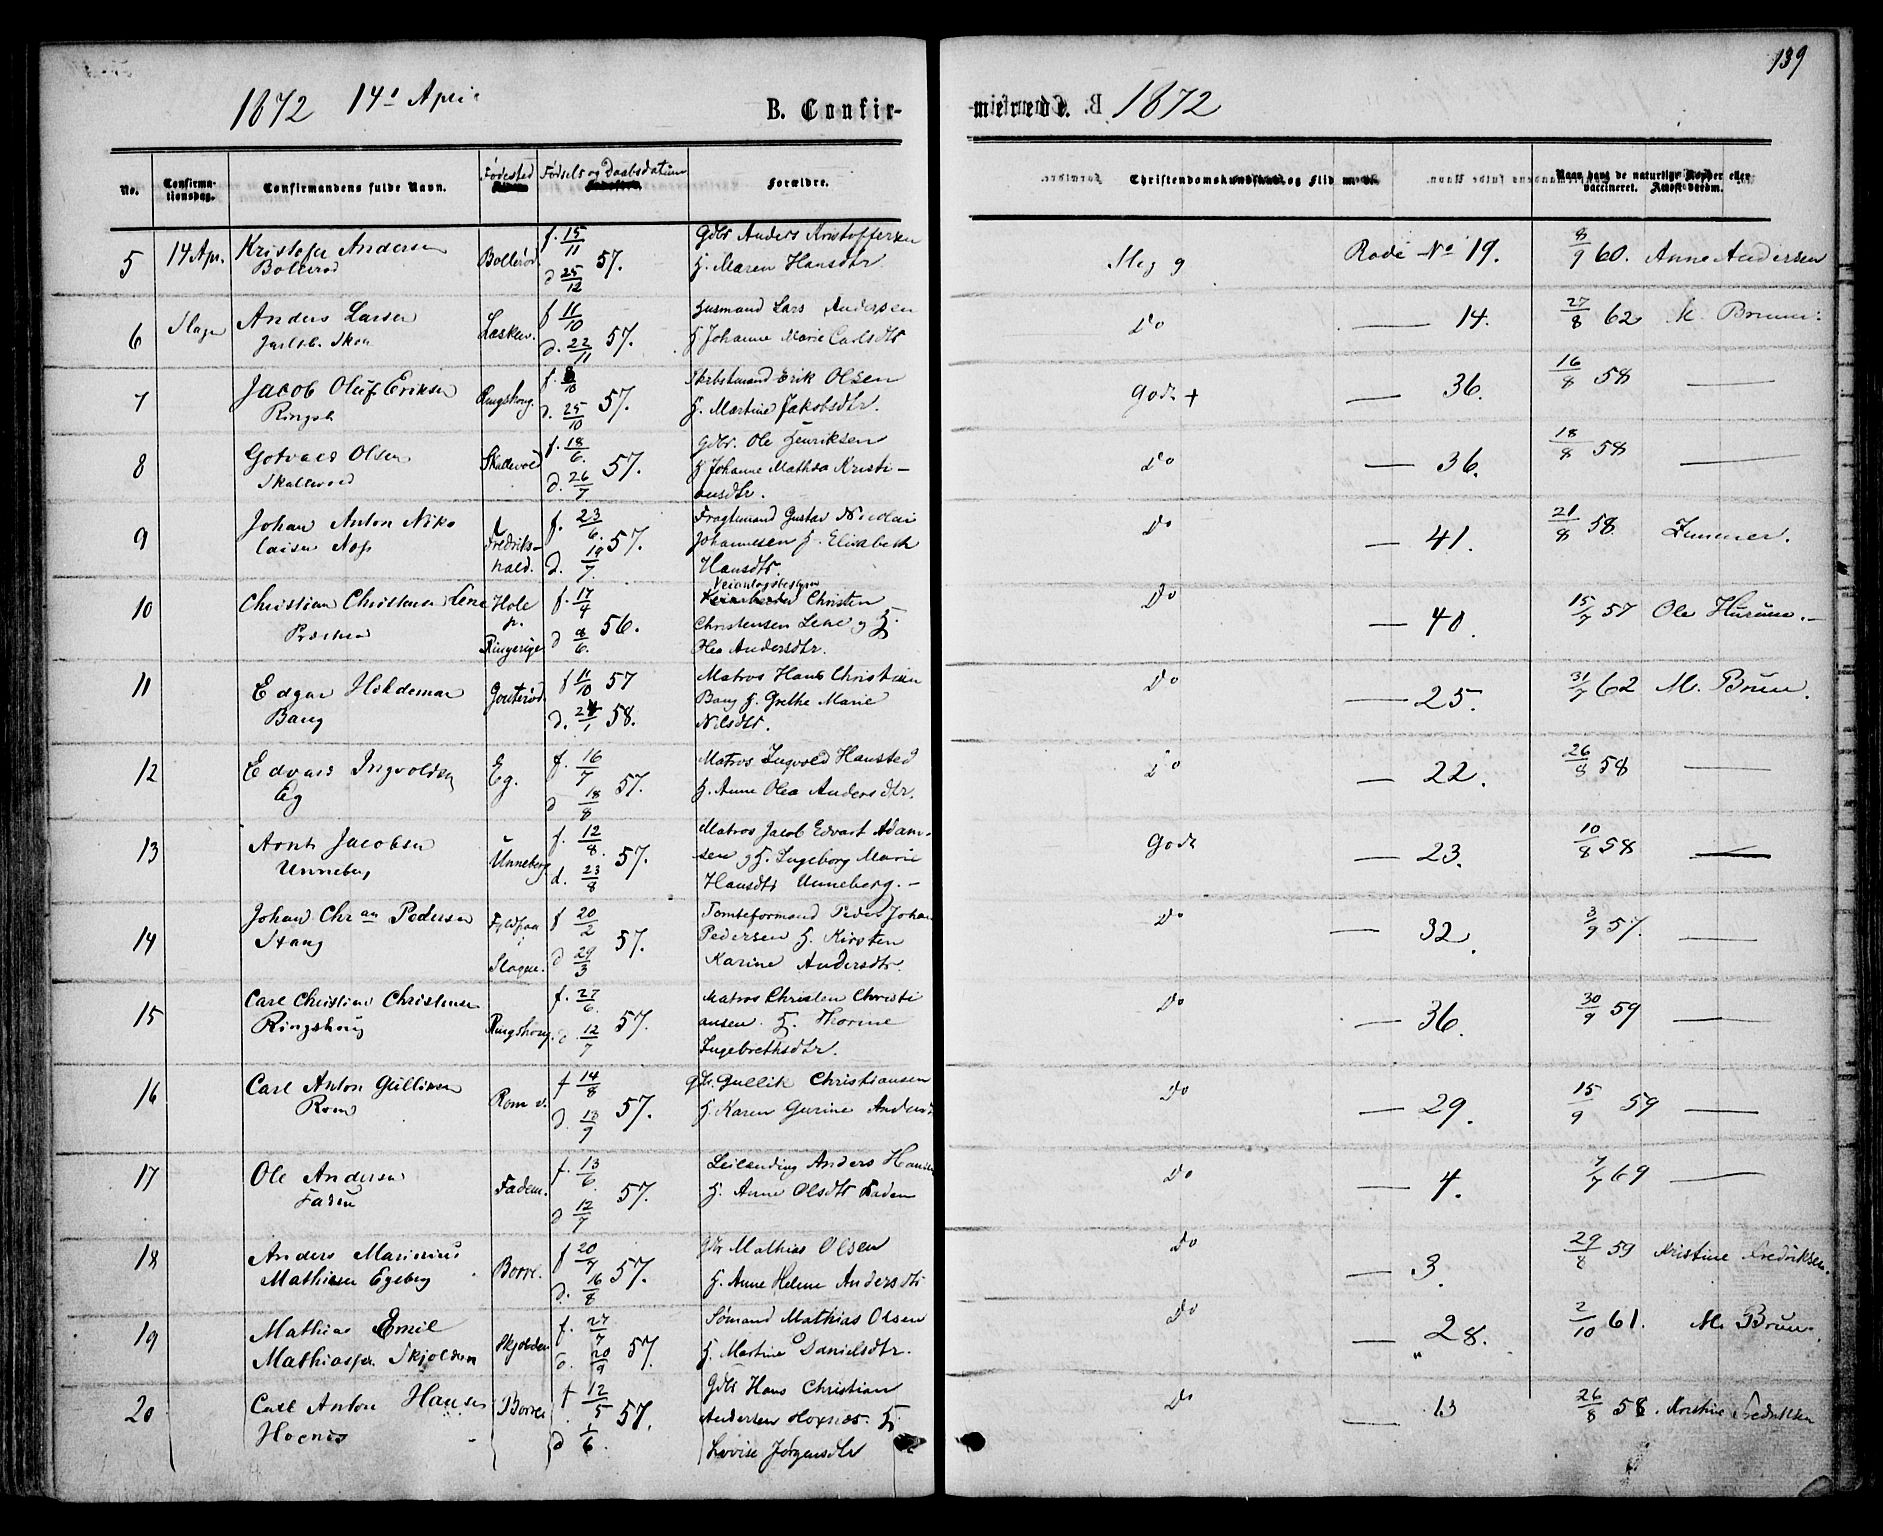 139
1872 14de April B. Confir-
merede. 1872
No. Confirma-tionsdag. Confirmandens fulde Navn. Fødested Fødsels og Daabsdatum Forældre. Christendomskundskab og Flid m. v. Naar havt de naturlige Kopper eller vaccineret. Attest derom.
5 14 Apr. Kristofer Andersen Bollerød Bollerød. f. 15/11 d 25/12 57. Gdbr Anders Kristoffersen H. Maren Hansdtr. Meg g Rode No 19. 8/9 60. Anne Andersen
6 Slagen Anders Larsen Jarlsb. Skov f 11/10 d. 22/11 57. Husmand Lars Andersen H Johanne Marie Carlsdtr Do — 14. 27/8 62 M. Bruun
7 Jacob Oluf Eriksen Ringsh Ringshoug. f. 8/10 d. 25/10 57. Erik Olsen H. Martine Jakobsdtr. Godt + — 36. 16/8 58 —
8 Olsen Skallevold Skallevold f. 18/6. d. 26/7 57. Gdbr. Ole Henriksen H Johanne Mathea Kristi-ansdtr. Do — 36. 18/8 58 —
9 Johan Anton Niko laisen Fredriks-hald. f. 23/6. d. 19/7. 57. Fragtemand Gustav Nicolai Johannesen H. Elisabeth Hansdtr. Do — 41. 21/8 58. Zimmer.
10 Christian Christensen Lene Hole p. Ringerige f. 17/4 d 8/6. 56. Veianlagsbestyrer Christen Christensen Lene og H. Olea Andersdtr. Do — 40. 15/7 57 Ole Hurum. —
11 Edgar Hildemar Bang Gouterød. f 11/10 57 d. 1 58. Matros Hans Christian Bang H. Grethe Marie Nilsdtr. Do — 25. 31/7 62 M. Bruun.
12 Edvard Ingvoldsen Eg Eg. f. 16/7 d 18/8 57. Matros Ingvold Hansted H. Anne Olea Andersdtr. Do — 22. 26/8 58 —
13 Arnt Jacobsen Unneberg Unneberg f. 12/8. d. 23/8 57. Matros Jacob Edvart Adam-sen og H. Ingeborg Marie Hansdtr Unneberg. — Godt — 23. 10/8 58 —
14 Johan Chr an Pedersen Stang i Slagen. f 20/2 d 29/3 57. Tomteformand Peder Johan Pedersen H. Kirsten Karine Andersdtr. Do — 32. 3/9 57. —
15 Carl Christian Christensen Ringshoug Ringshoug. f. 27/6. d. 12/7 57. Matros Christen Christi ansen. H. Thorine Ingebrethsdtr. Do — 36. 30/9 59 —
16 Carl Anton Gulliksen Rom Rom v. f 14/8 d. 57. Gbr. Gullik Christiansen H. Karen Gurine Andersd Do — 29. 15/9 59 —
17 Ole Andersen Faden Faden. f. 13/6 d 12/7 57. Leilending Anders Hansen H. Anne Olsdtr Faden Do — 4. 7/7 69 —
18 Anders Marinius Mathisen Egeberg Borre. f 20/7 d. 16/8 57. Gbr Mathias Olsen H. Anne Helene Andersdtr Do — 3. 29/8 59 Kristine Fredriksen.
19 Mathias Emil Mathiassen Skjolden Skjolden f. 27/7 d. 20/9 57. Sømand Mathias Olsen H. Martine Danielsdtr. Do — 28. 2/10 61. M. Bruun.
20 Carl Anton Hansen Hoxnes Borre f 12/5 d 1/6. 57. Gdbr Hans Christian Andersen Hoxnes. H. Lovise Jørgensdtr Do — 13 26/8 58. Kristine Fredriksen